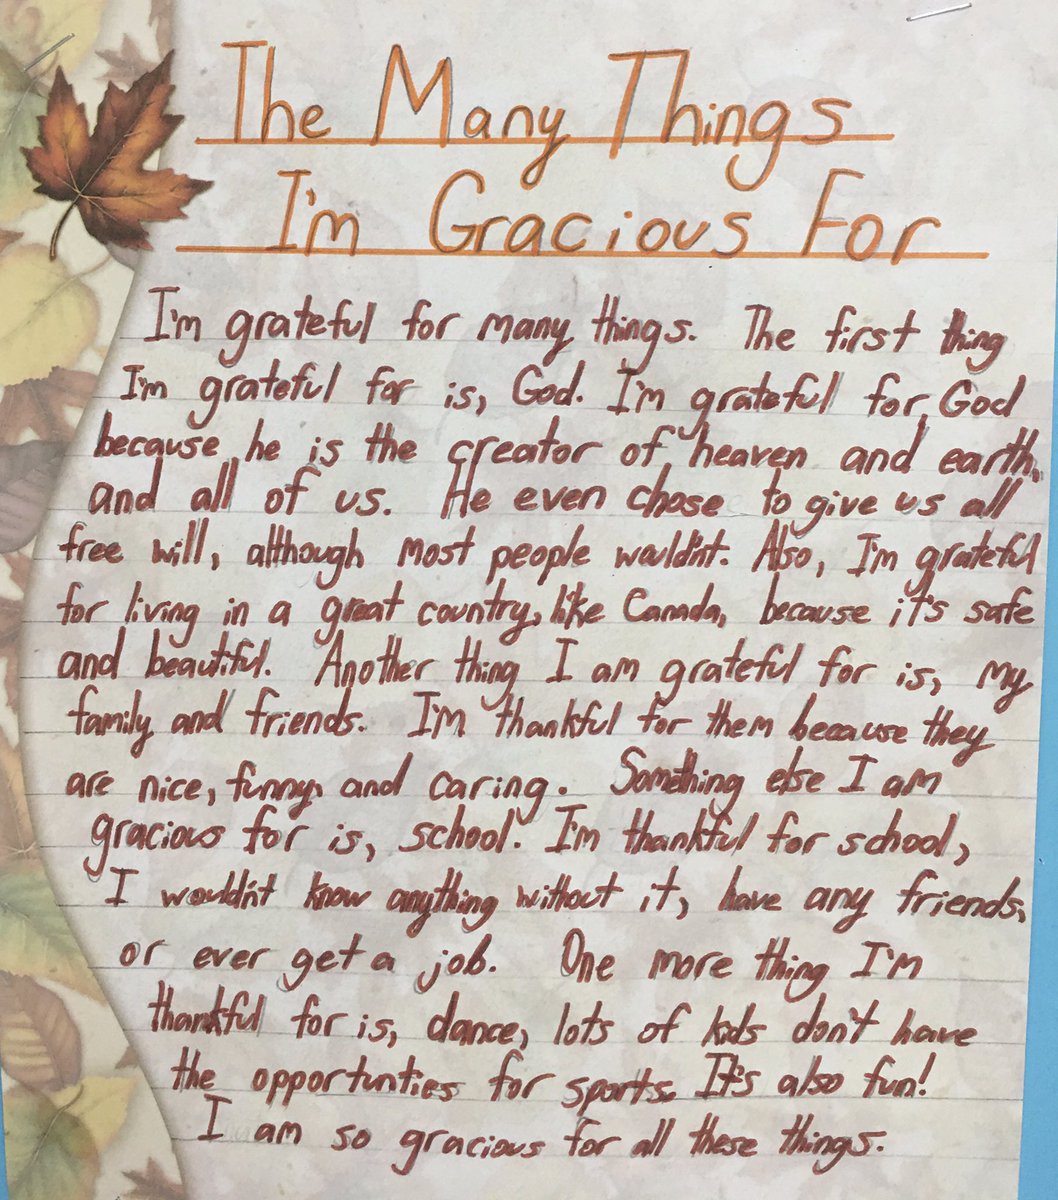 The Many Things
I'm Gracious For
I'm grateful for many things. The first thing
I'm grateful for is, God. I'm grateful for God
because he is the creator of heaven and earth,
and all of us. He even chose to give us all
free will, although most people wouldn't. Also, I'm grateful
for living in a great country, like Canada, because it's safe
and beautiful. Another thing I am grateful for is, my
family and friends. I'm thankful for them because they
are nice, funny, and caring. Something else I am
gracious for is, school. I'm thankful for school,
I wouldn't know anything without it, have any friends,
or ever get a job. One more thing I'm
thankful for is, dance, lots of kids don't have
the opportunties for sports. It's also fun!
I am so gracious for all these things.